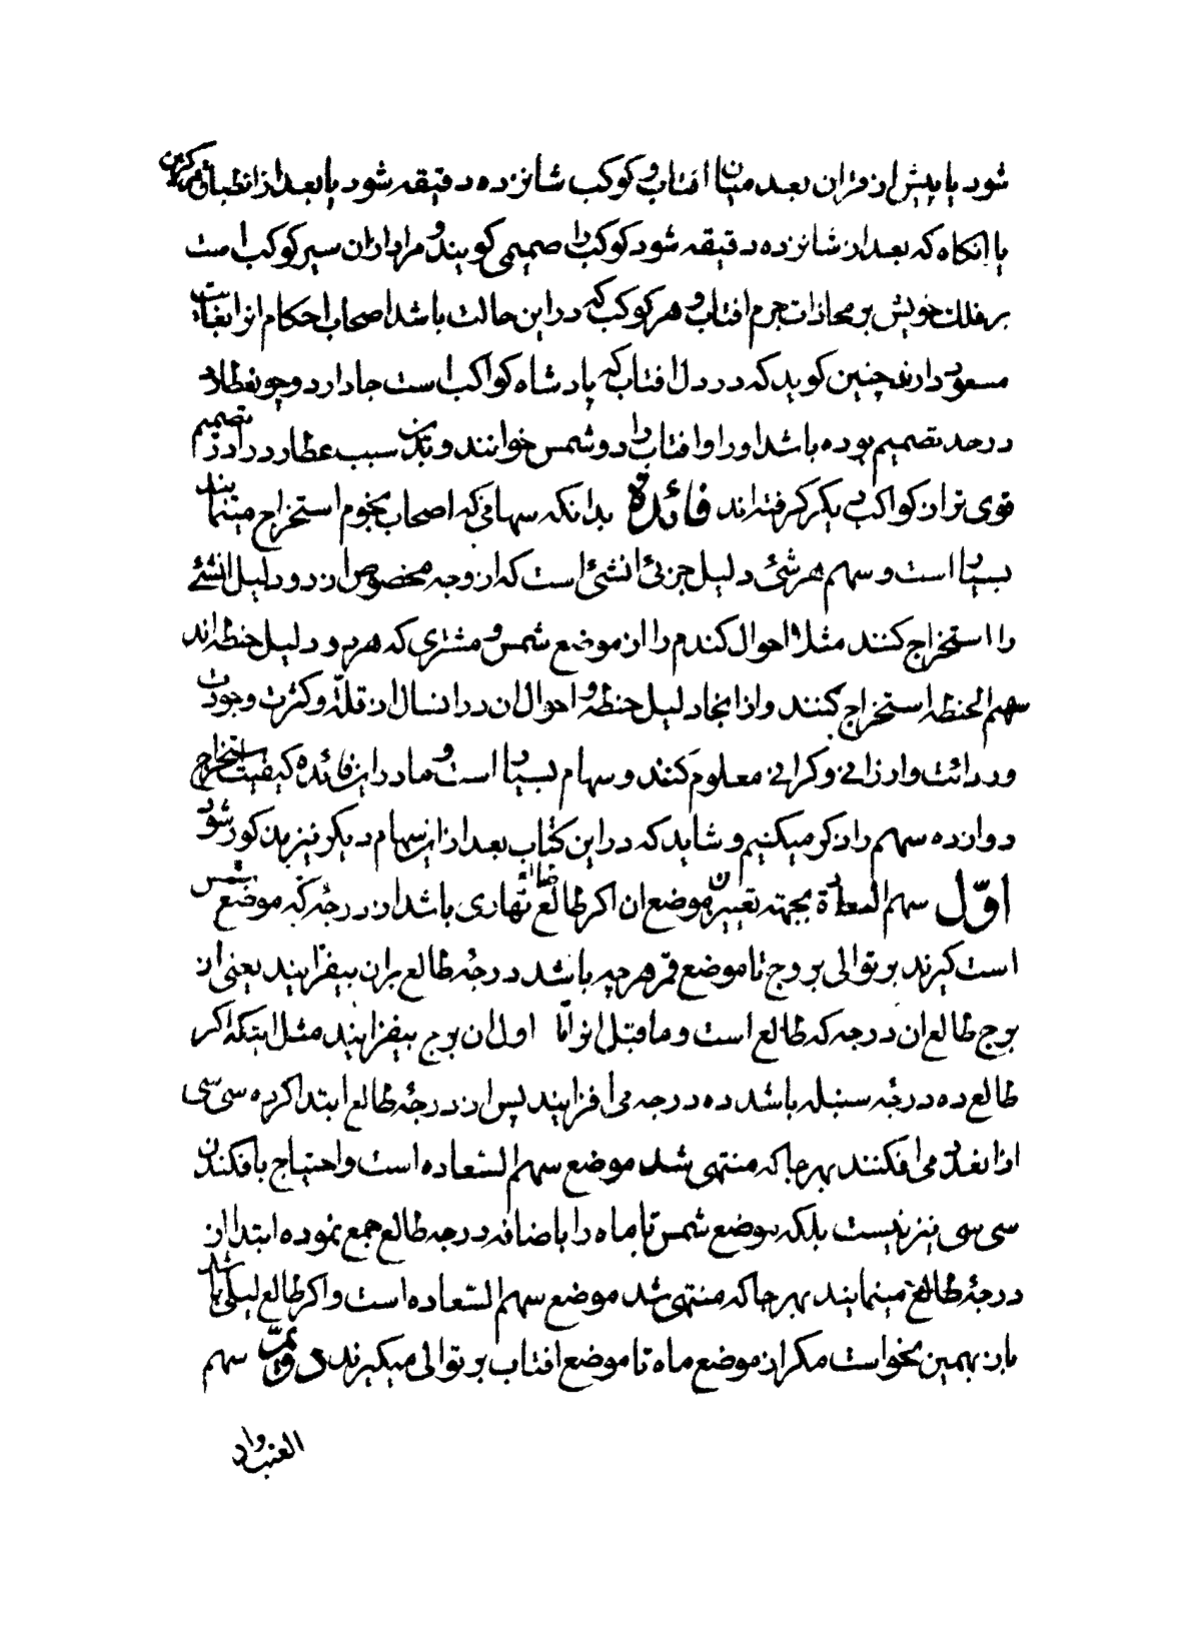 شود یا پیش از قران بعد میان افتاب و کوکب شانزده دقیقه شود یا بعد از انطباق مرکزین
یا انکاه که بعد از شانزده دقیقه شود کوکب را صمیمی کویند و مراد ازان سیر کوکب است
بر فلک خویش بر محاذات جرم افتاب و هر کوکب که در این حالت باشد اصحاب احکام انرا بغایت
مسعود دارند چنین کویند که در دل افتاب که پادشاه کواکب است جا دارد و چون عطارد
در حد تصمیم بوده باشد او را و افتاب را دو شمس خوانند و بدین سبب عطارد را در تصمیم
قوی تر از کواکب دیکر کرفته اند فائدة بدانکه سهامی که اصحاب نجوم استخراج مینمایند
بسیار است و سهم هر شئ دلیل جزئی انشئ است که از وجه مخصوص از دو دلیل انشئ
را استخراج کنند مثلا احوال کندم را از موضع شمس و مشتری که هر دو دلیل حنطه اند
سهم الحنطه استخراج کنند و از انجا دلیل حنطه و احوال ان در انسال از قلة و کثرت وجودت
وردائت وارزانی وکرانی معلوم کنند و سهام بسیار است و ما در این فائده کیفیت استخراج
دوازده سهم را ذکر میکنیم و شاید که در این کتاب بعد از این سهام دیکر نیز مذکور شود
اوّل سهم السعادة بجهته تعیین موضع ان اکر طالع نهاری باشد از درجه که موضع شمس
است کیرند بر توالی بروج تا موضع قمر هر چه باشد درجهٔ طالع بران بیفزایند یعنی از
برج طالع ان درجه که طالع است و ما قبل انرا از اول ان برج بیفزایند مثل اینکه اکر
طالع ده درجهٔ سنبله باشد ده درجه می افزایند پس از درجهٔ طالع ابتدا کرده سی سی
ازانعدد می افکنند بهر جا که منتهی شد موضع سهم السّعاده است و احتیاج بافکندن
سی سی نیز نیست بلکه موضع شمس تا ماه را باضافه درجه طالع جمع نموده ابتدا از
درجهٔ طالع مینمایند بهر جا که منتهی شد موضع سهم السّعاده است و اکر طالع لیلی باشد
باز بهمین نحواست مکر از موضع ماه تا موضع افتاب بر توالی میکیرند دویّم سهم
العنب واد